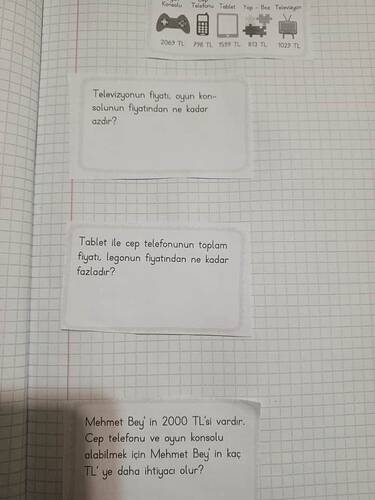 Konsolu Telefonu Tablet Yap - Boz Televizyon
2069 TL 798 TL 1539 TL 813 TL 1023 TL
Televizyonun fiyatı, oyun kon-
solunun fiyatından ne kadar
azdır?
Tablet ile cep telefonunun toplam
fiyatı, legonun fiyatından ne kadar
fazladır?
Mehmet Bey' in 2000 TL'si vardır.
Cep telefonu ve oyun konsolu
alabilmek için Mehmet Bey' in kaç
TL' ye daha ihtiyacı olur?